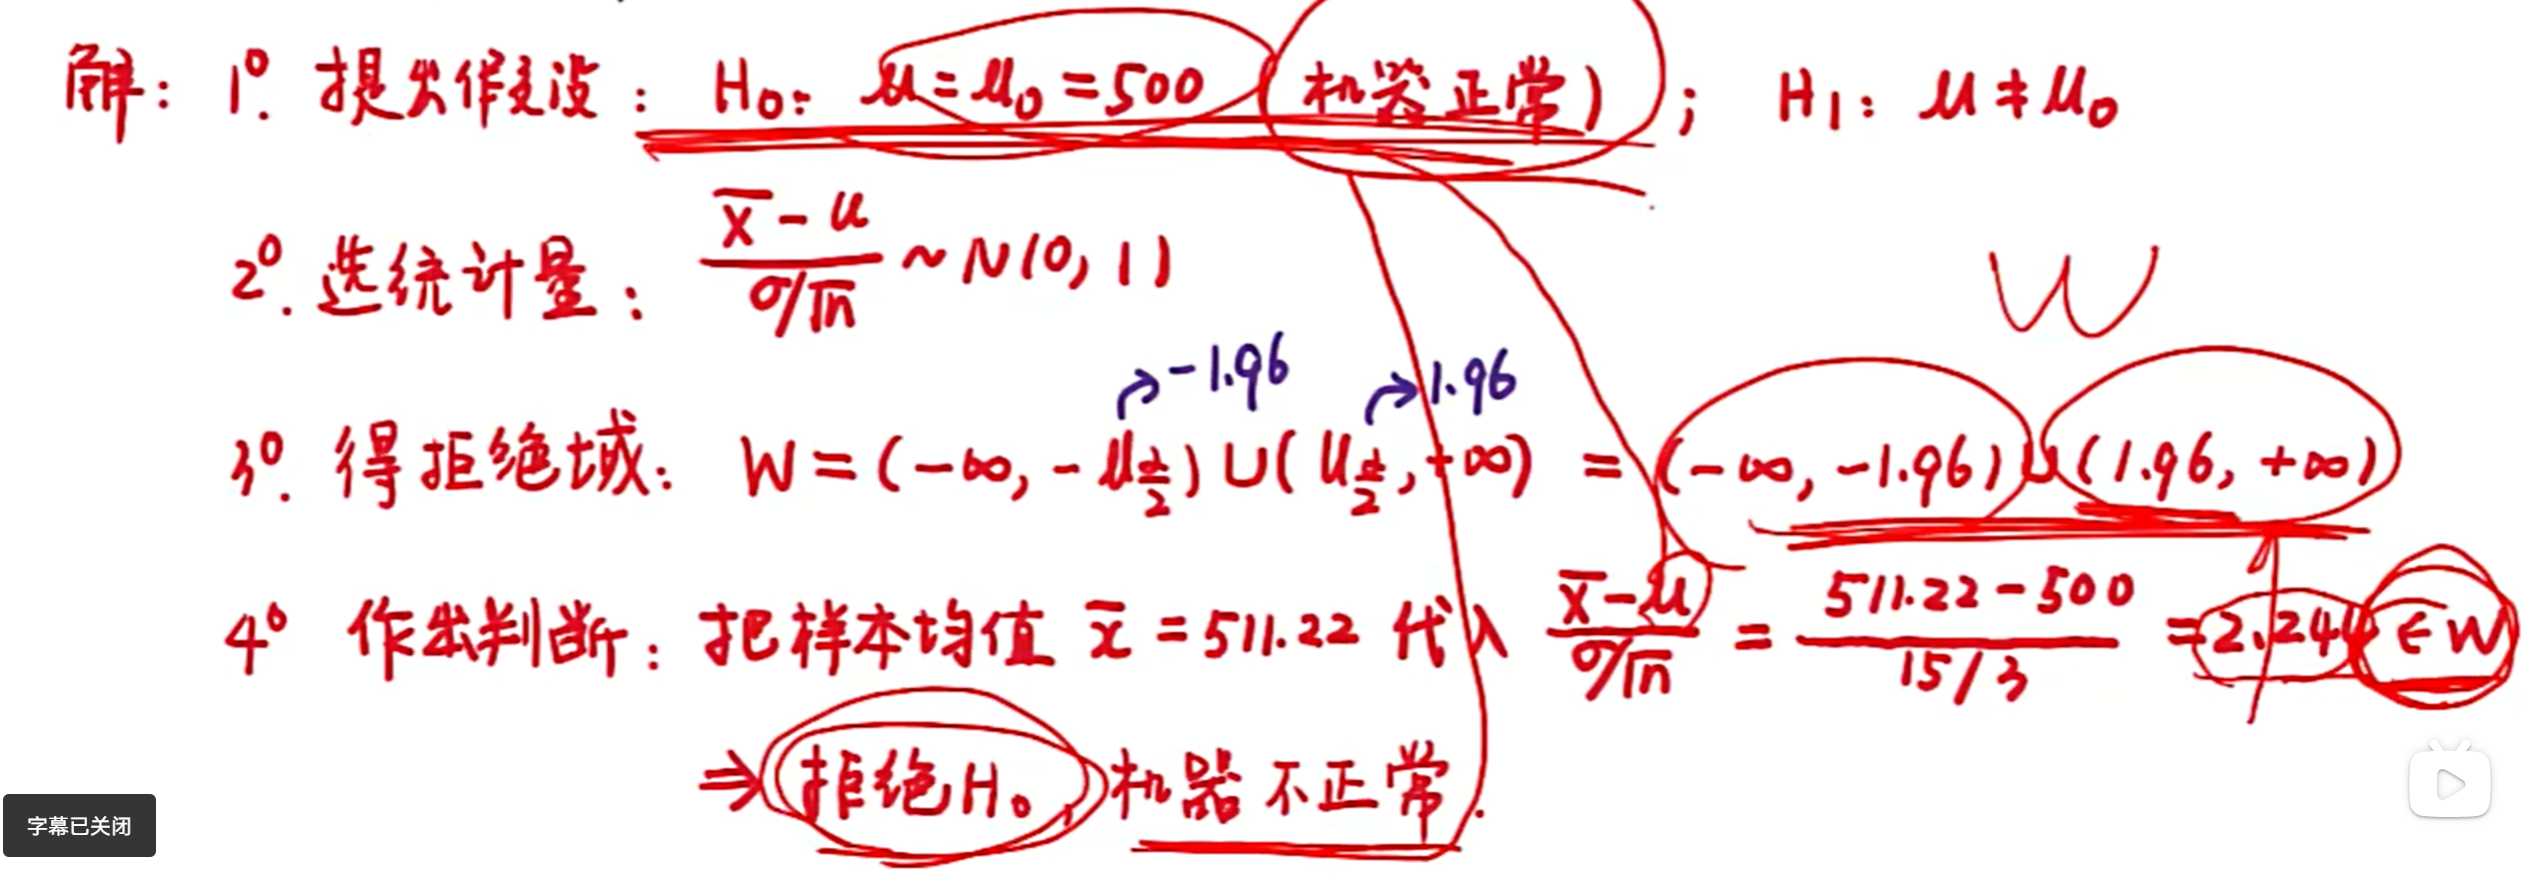 解：1°. 提出假设：H₀：μ=μ₀=500（机器正常）；H₁：μ≠μ₀
W
2°. 选统计量：(x̄-μ)/(σ/√n) ~ N(0, 1)
-1.96 1.96
3°. 得拒绝域：W=(-∞, -μ_{α/2})∪(μ_{α/2}, +∞) = (-∞, -1.96)∪(1.96, +∞)
4° 作出判断：把样本均值 x̄=511.22 代入 (x̄-μ)/(σ/√n) = (511.22-500)/(15/3) =2.244∈W
⇒拒绝H₀，机器不正常.
字幕已关闭